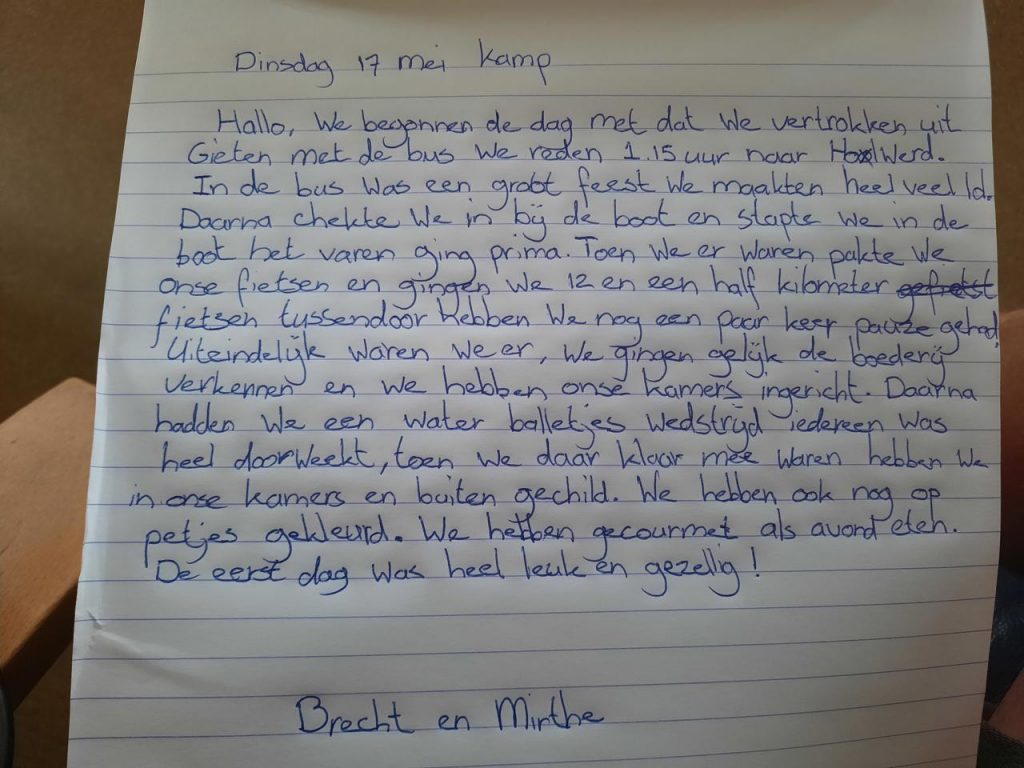 Dinsdag 17 mei kamp
Hallo, We begonnen de dag met dat We vertrokken uit
Gieten met de bus We reden 1.15 uur naar Holwerd.
In de bus Was een groot feest We maakten heel veel ld.
Daarna chekte We in bij de boot en stapte We in de
boot het varen ging prima. Toen We er Waren pakte We
onse fietsen en gingen We 12 en een half kilometer gefietst
fietsen tussendoor hebben We nog een paar keer pauze gehad.
Uiteindelijk Waren We er, We gingen gelijk de boederij
verkennen en we hebben onse kamers ingericht. Daarna
hadden We een water balletjes Wedstrijd iedereen Was
heel doorweekt, toen We daar klaar mee Waren hebben We
in onse kamers en buiten gechild. We hebben ook nog op
petjes gekleurd. We hebben gecourmet als avond eten.
De eerst dag Was heel leuk en gezellig!
Brecht en Minthe